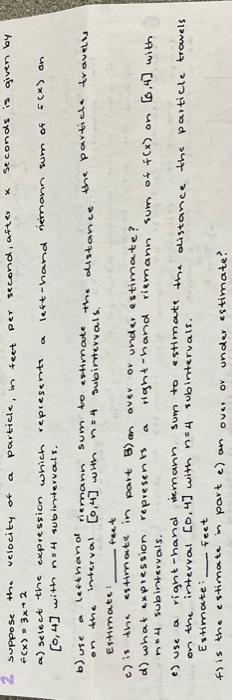 2 suppose the velocity of a particle, in feet per second, after x seconds is given by
f(x) = 3x+2
a) select the expression which represents a left-hand riemann sum of f(x) on
[0,4] with n=4 subintervals.
b) use a lefthand riemann sum to estimate the distance the particle travels
on the interval [0,4] with n=4 subintervals.
Estimate: ____ feet
c) is the estimate in part B) an over or under estimate?
d) what expression represents a right-hand riemann sum of f(x) on [0,4] with
n=4 subintervals.
e) use a right-hand riemann sum to estimate the distance the particle travels
on the interval [0,4] with n=4 subintervals.
Estimate: ____ feet
f) is the estimate in part e) an over or under estimate?